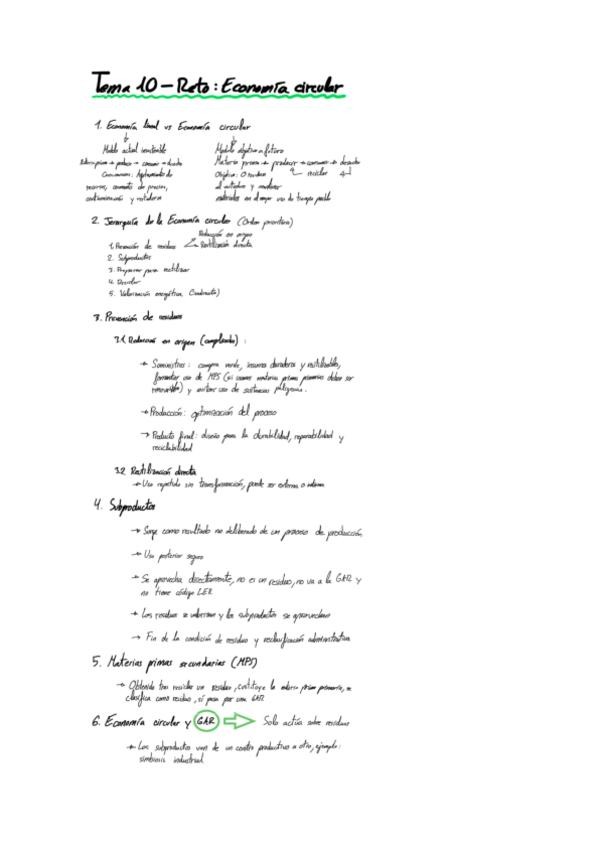 Tema 10 – Reto: Economía circular
1. Economía lineal vs Economía circular
Modelo actual insostenible
Modelo objetivo a futuro
Materia prima → producir → consumir → desecho
Materia prima → producir → consumir → desecho
reciclar
Consecuencias: Agotamiento de
recursos, aumento de precios,
contaminación y vertederos
Objetivo: 0 residuos
al vertedero y mantener
materiales en el mayor uso de tiempo posible
2. Jerarquía de la Economía circular (Orden prioritario)
Reducción en origen
1. Prevención de residuos
Reutilización directa
2. Subproductos
3. Preparar para reutilizar
4. Reciclar
5. Valorización energética
3. Prevención de residuos
3.1. Reducción en origen (complicado):
→ Suministros: compra verde, insumos duraderos y reutilizables,
fomentar uso de MPS (si usamos materias primas primarias deben ser
renovables) y evitar uso de sustancias peligrosas.
→ Producción: optimización del proceso
→ Producto final: diseño para la durabilidad, reparabilidad y
reciclabilidad
3.2 Reutilización directa
→ Uso repetido sin transformación, puede ser externa o interna
4. Subproductos
→ Surge como resultado no deliberado de un proceso de producción
→ Uso posterior seguro
→ Se aprovecha directamente, no es un residuo, no va a la GAR y
no tiene código LER
→ Los residuos se valorizan y los subproductos se aprovechan
→ Fin de la condición de residuo y reclasificación administrativa
5. Materias primas secundarias (MPS)
→ Obtenida tras reciclar un residuo, sustituye la materia prima primaria, se
clasifica como residuo, sí pasa por una GAR
6. Economía circular y GAR ⇒ Solo actúa sobre residuos
→ Los subproductos van de un centro productivo a otro, ejemplo:
simbiosis industrial